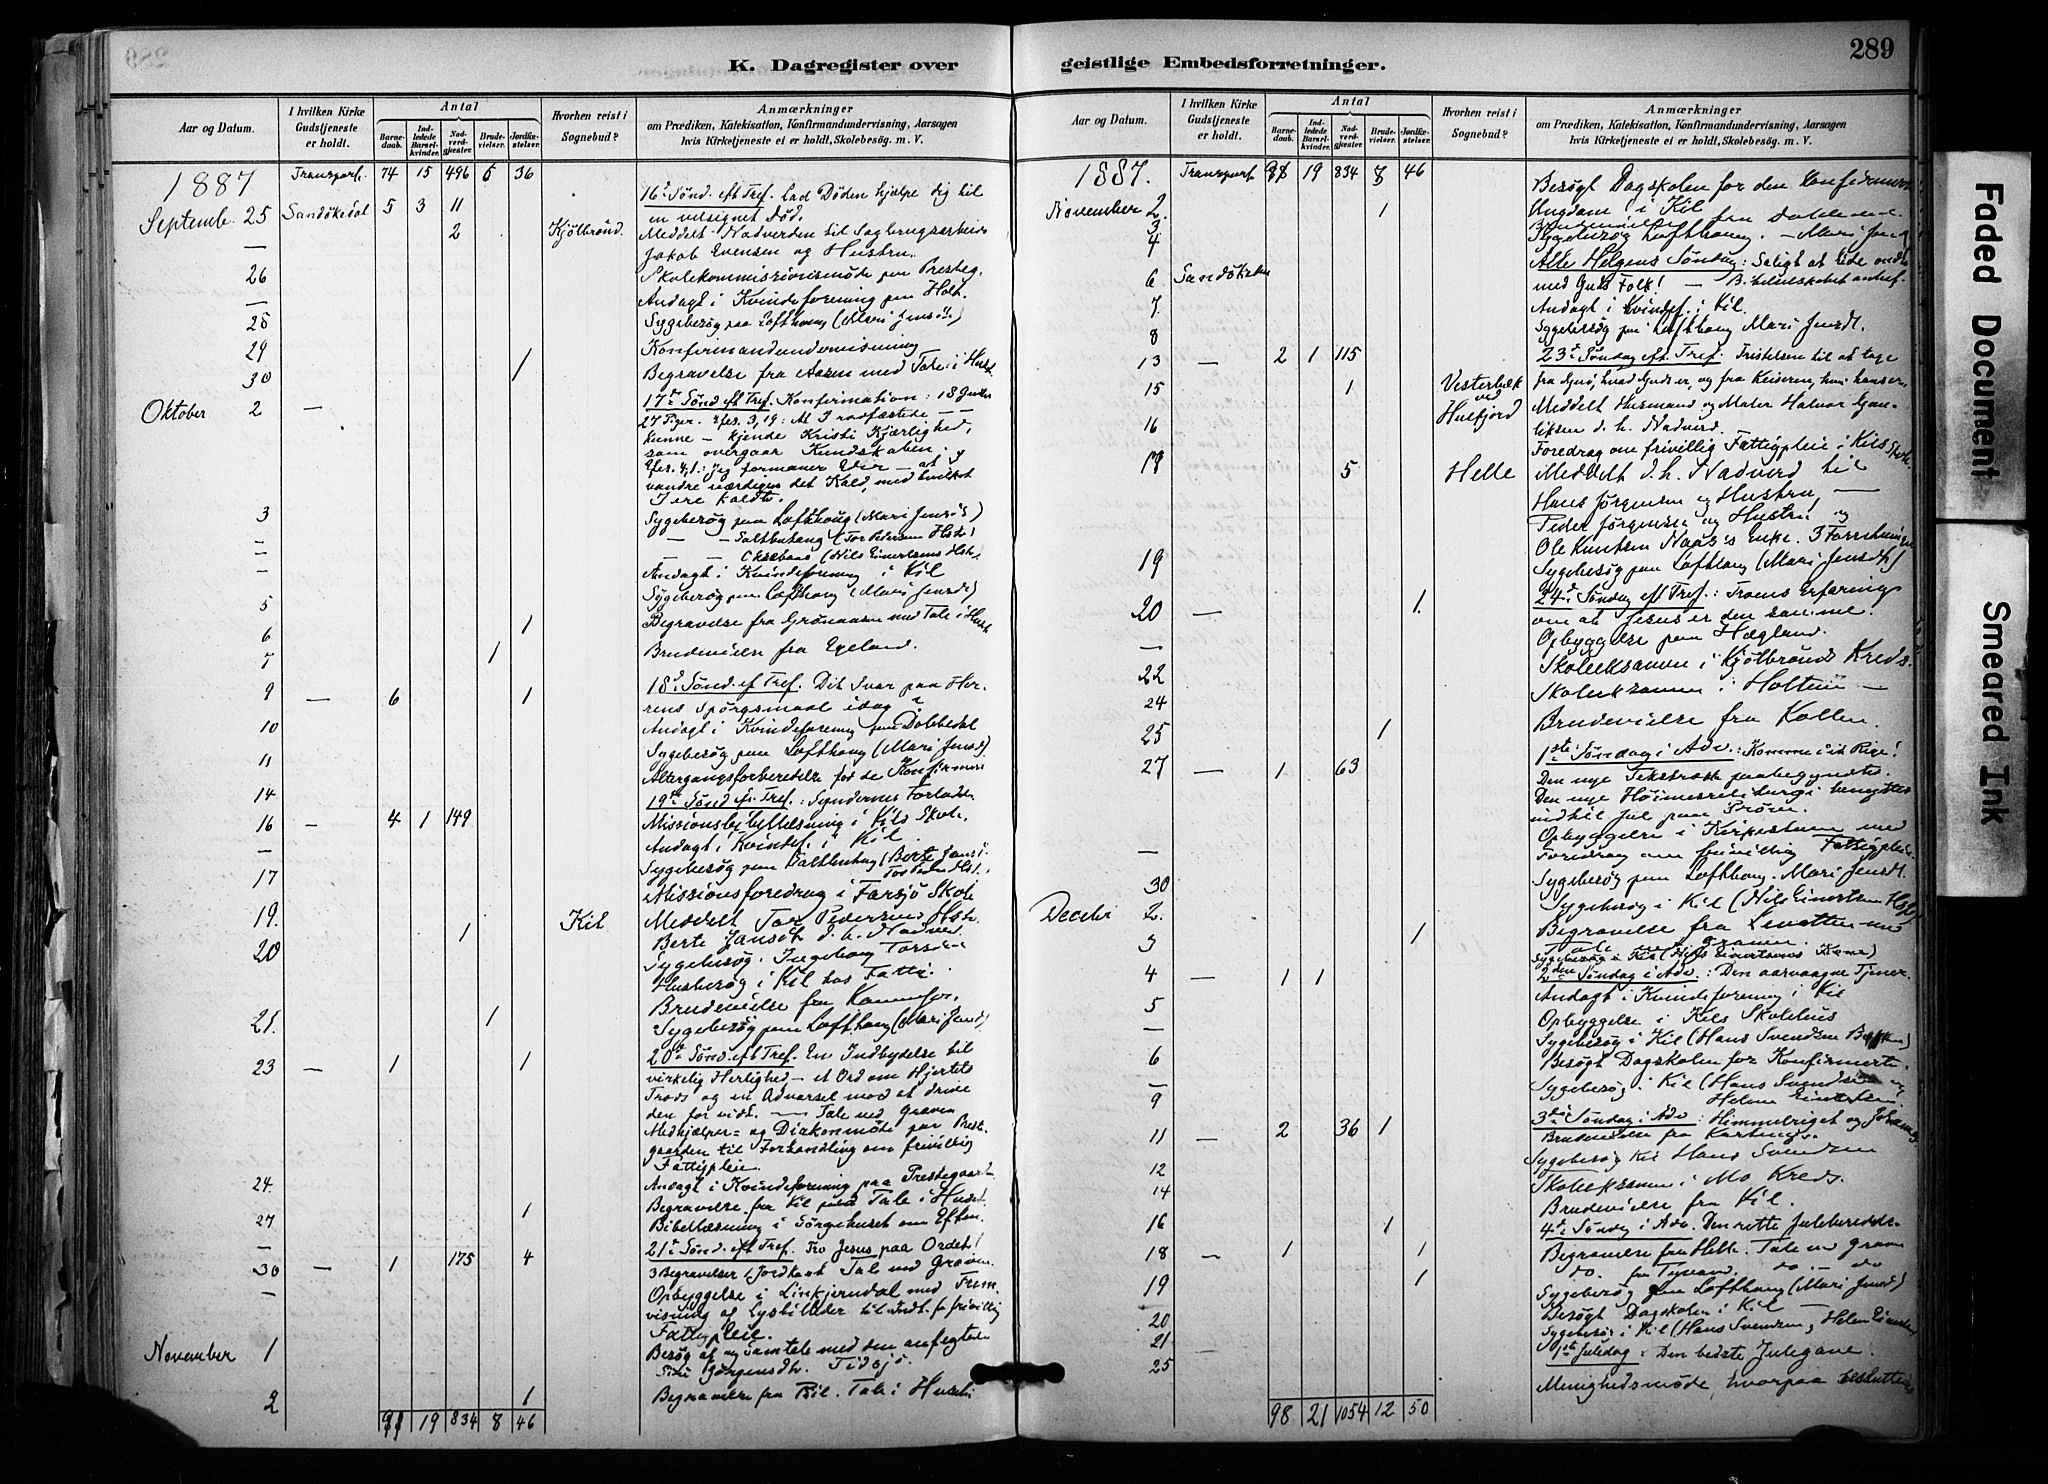 289
K. Dagregister over
geistlige Embedsforretninger.
Aar og Datum.
I hvilken Kirke Gudstjeneste er holdt.
Antal
Barnedaab.
Indledede Barselkvinder.
Nadverdgjæster.
Brudevielser.
Jordfæstelser.
Hvorhen reist i Sognebud?
Anmærkninger
om Prædiken, Katekisation, Konfirmandundervisning, Aarsagen
hvis Kirketjeneste ei er holdt, Skolebesøg. m. V.
1887 Transport. 74 15 496 5 36
16de Sønd. eft Tref. Lad Døden hjælpe dig til
Septemb. 25 Sandökedal 5 3 11
en velsignet Død.
— 2 Kjölbrönd. Meddelt Nadverden til Sagbrugsarbeider
Jakob Evensen og Hustru.
26 Skolekommissionsmöde paa Presteg.
— Andagt i Kvindeforening paa Holt.
28 Sygebesøg paa Lofthaug (Mari Jensdt)
29 Konfirmandundervisning
30 1 Begravelse fra Aasen med Tale i Huset
Oktober 2 — 17de Sønd eft Tref. Konfirmation: 18 Gutter
27 Piger. Efes. 3, 19: At I rodfæstede — —
kunne — kjende Kristi Kjærlighed,
som overgaar Kundskaben. og
Efes. 4, 1: Jeg formaner Eder — at
vandre værdigen det Kald, med hvilket
I ere kaldte.
3 Sygebesøg paa Lofthaug (Mari Jensdt)
— — — Saltbutang (Tor Pedersens Hstr)
— — — (Nils Einertsens Hstr)
— Andagt i Kvindeforening i Kil
5 Sygebesøg paa Lofthaug (Mari Jensdt)
6 1 Begravelse fra Grönaasen med Tale i Huset
7 1 Brudevielse fra Egeland.
9 — 6 1 18de Sønd. ef Tref. Dit Svar paa Her-
rens Spørgsmaal idag?
10 Andagt i Kvindeforening paa Dobbedal
11 Sygebesøg paa Lofthaug (Mari Jensdt)
14 Altergangsforberedelse for de Konfirmer
16 — 4 1 149 19de Sønd. ef. Tref.: Syndernes Forladelse
— Missionsbibellæsning i Kils Skole.
17 Andagt i Kvindef. i Kil
Sygebesøg paa Saltbutang (Berte Jansdt.
Tor Peders Hst.)
19. Missionsforedrag i Farsjø Skole
20 1 Kil Meddelt Tor Pedersens Hstr.
Berte Jansdt d. h. Nadverd.
Sygebesøg. Ingeborg Torsdt
Husbesøg i Kil hos Fatti.
21. 1 Brudevielse fra
Sygebesøg paa Lofthaug (Mari Jensd)
23 — 1 1 20de Sønd. eft Tref. En Indbydelse til
virkelig Herlighed — et Ord om Hjertets
Trods og en Advarsel mod at drive
den for vidt. — Tale ved Graven
Medhjælper- og Diakonmöde paa Preste-
gaarden til Forhandling om frivillig
Fattigpleie.
24. Andagt i Kvindeforening paa Prestegaarden
27 1 Begravelse fra Kil med Tale i Huset.
— Bibellæsning i Sörgehuset om Eften.
30 — 1 175 4 21de Sønd. eft Tref. Tro Jesus paa Ordet!
3 Begravelser 1 Jordkast Tale ved Graven.
— Opbyggelse i Linkjerndal med Frem-
visning af Lysbilleder til Indt. for frivillig
Fattigpleie.
November 1 Besøg af og Samtale med den anfegtede
Siri Jörgensdt. Tidsjö.
2 1 Begravelse fra Kil. Tale i Huset
98 19 834 8 46
1887. Transport 88 19 834 8 46
November 2. 1 Besøgt Dagskolen for den konfirmerede
Ungdom i Kil
3 Brudevielse fra Dobbedal
4 Sygebesøg Lofthaug. — Mari Jensd
6 Sandökedal Alle Helgens Søndag: Saligt at lide ondt
med Guds Folk! — Bibelselskabet anbef.
7 Andagt i Kvindef. i Kil.
8 Sygebesøg paa Lofthaug Mari Jensdt.
13 — 2 1 115 23de Søndag eft. Tref. Fristelsen til at tage
fra Gud, hvad Guds er, og fra Keiseren, hvad hans er.
15 1 Vesterbæk ved Hulfjord Meddelt Husmand og Maler Halvor
d. h. Nadverd.
16 Foredrag om frivillig Fattigpleie i Kils Skole.
18 5 Helle Meddelt d. h. Nadverd til
Hans Jørgensen og Hustru, —
Peder Jørgensen og Hustru og
Ole Knutsen Naas's Enke. 3 Forretninger
19 Sygebesøg paa Lofthaug (Mari Jensdt)
20 — 1. 24de Søndag eft Tref.: Troens Erfaring
om at Jesus er den samme.
— Opbyggelse paa Hægland.
22 Skoleeksamen i Kjölbrönds Kreds.
24 Skoleeksamen i Holtein —
25 1 Brudevielse fra Kollen.
27 — 1 63 1ste Søndag i Adv.: Komme dit Rige!
Den nye Tekstrække paabegyndtes.
Den nye Höimesseliturgi benyttes
indtil Jul paa Prøve.
— Opbyggelse i Kirkestuen med
Foredrag om frivillig Fattigpleie.
30 Sygebesøg paa Lofthaug. Mari Jensdt.
Decebr 2. Sygebesøg i Kil (Nils Einertsens Hst)
3 1 Begravelse fra med
Tale ved Graven.
Sygebesøg i Kil (Nils Einertsens Kone)
4 — 1 1 2den Søndag i Adv.: Den aarvaagne Tjener.
5 Andagt i Kvindeforening i Kil
— Opbyggelse i Kils Skolehus
6 Sygebesøg i Kil (Hans Svendsen Bakken)
— Besøgt Dagskolen for Konfirmerte.
9 Sygebesøg i Kil (Hans Svendsen og
Helene Einertsen.
11 — 2 36 1 3die Søndag i Adv: Himmelriget og Johannes
Brudevielse fra
12 Sygebesøg Kil Hans Svendsen
14 Skoleeksamen i Mo Kreds.
16 1 Brudevielse fra Kil.
18 — 1 1 4de Søndag i Adv. Den rette Juleberedelse.
Begravelse fra Helle. Tale ved Graven
19 1 do. fra Tyvand. do — do
20 Sygebesøg paa Lofthaug (Mari Jensdt)
21 Besøgt Dagskolen i Kil —
Sygebesøg i Kil (Hans Svendsen, Helene Einertsen
25 — 1ste Juledag: Den bedste Julegave.
Menighedsmøde, hvorpaa besluttedes
98 21 1054 12 50
Faded Document
Smeared Ink